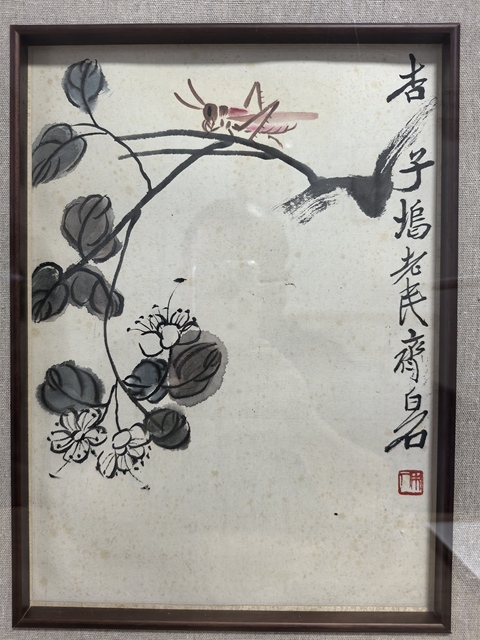 杏子塢老民齊白石